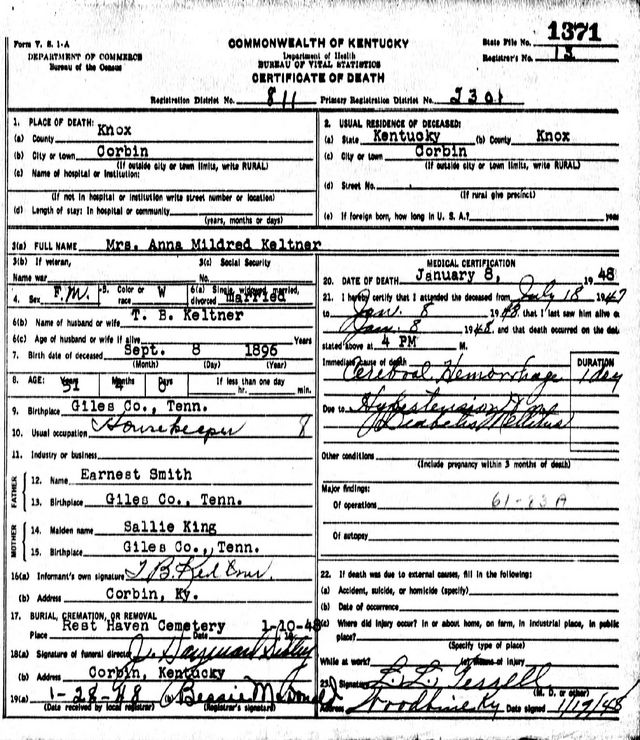 Form V. S. 1-A
DEPARTMENT OF COMMERCE
Bureau of the Census
COMMONWEALTH OF KENTUCKY
Department of Health
BUREAU OF VITAL STATISTICS
CERTIFICATE OF DEATH
State File No. 1371
Registrar's No. 13
Registration District No. 811 Primary Registration District No. 2301
1. PLACE OF DEATH:
(a) County Knox
(b) City or town Corbin
(If outside city or town limits, write RURAL)
(c) Name of hospital or institution:
(If not in hospital or institution write street number or location)
(d) Length of stay: In hospital or community
(years, months or days)
2. USUAL RESIDENCE OF DECEASED:
(a) State Kentucky (b) County Knox
(c) City or town Corbin
(If outside city or town limits, write RURAL)
(d) Street No.
(If rural give precinct)
(e) If foreign born, how long in U. S. A.? years
3(a) FULL NAME Mrs. Anna Mildred Keltner
3(b) If veteran, Name war
3(c) Social Security No.
4. Sex F.M. 5. Color or race W 6(a) Single, widowed, married, divorced married
6(b) Name of husband or wife T. B. Keltner
6(c) Age of husband or wife if alive years
7. Birth date of deceased Sept. 8 1896
(Month) (Day) (Year)
8. AGE: Years 51 Months 4 Days 0 If less than one day hr. min.
9. Birthplace Giles Co., Tenn.
10. Usual occupation Housekeeper 8
11. Industry or business
FATHER
12. Name Earnest Smith
13. Birthplace Giles Co., Tenn.
MOTHER
14. Maiden name Sallie King
15. Birthplace Giles Co., Tenn.
16(a) Informant's own signature T. B. Keltner
(b) Address Corbin, Ky.
17. BURIAL, CREMATION, OR REMOVAL
Place Rest Haven Cemetery Date 1-10-48 19
18(a) Signature of funeral director J.
(b) Address Corbin, Kentucky
19(a) 1-28-48 (b) Bessie McDonald
(Date received by local registrar) (Registrar's signature)
MEDICAL CERTIFICATION
20. DATE OF DEATH January 8, 1948
21. I hereby certify that I attended the deceased from July 18 1947
to Jan. 8 1948, that I last saw him alive on
Jan. 8 1948, and that death occurred on the date
stated above at 4 PM M.
Immediate cause of death DURATION
Cerebral Hemorrhage 1 day
Due to Hypertension and
Diabetes Mellitus
Other conditions
(Include pregnancy within 3 months of death)
Major findings:
Of operations 61-83A
Of autopsy
22. If death was due to external causes, fill in the following:
(a) Accident, suicide, or homicide (specify)
(b) Date of occurrence
(c) Where did injury occur? In or about home, on farm, in industrial place, in public place?
(Specify type of place)
While at work? (e) Means of injury
23. Signature L. L. Terrell
(M. D. or other)
Address Woodbine Ky Date signed 1/19/48